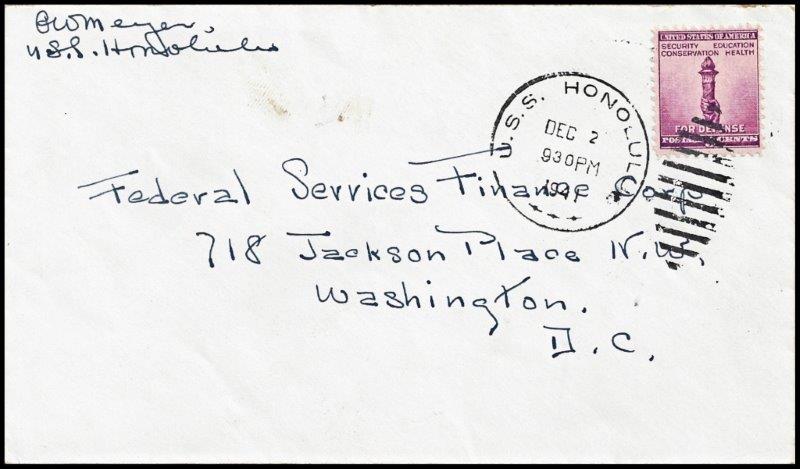 CWMeyer,
U.S.S. Honolulu
UNITED STATES OF AMERICA
SECURITY EDUCATION
CONSERVATION HEALTH
FOR DEFENSE
POSTAGE CENTS
U.S.S. HONOLULU
DEC 2
930PM
1941
Federal Services Finance Corp.
718 Jackson Place N.W.
Washington.
D.C.